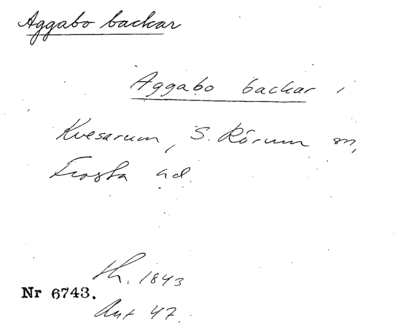 Aggabo backar
Aggabo backar i
Kvesarum, S. Rörum sn,
Frosta hd.
th. 1843
Nr 6743.
Ant 47.